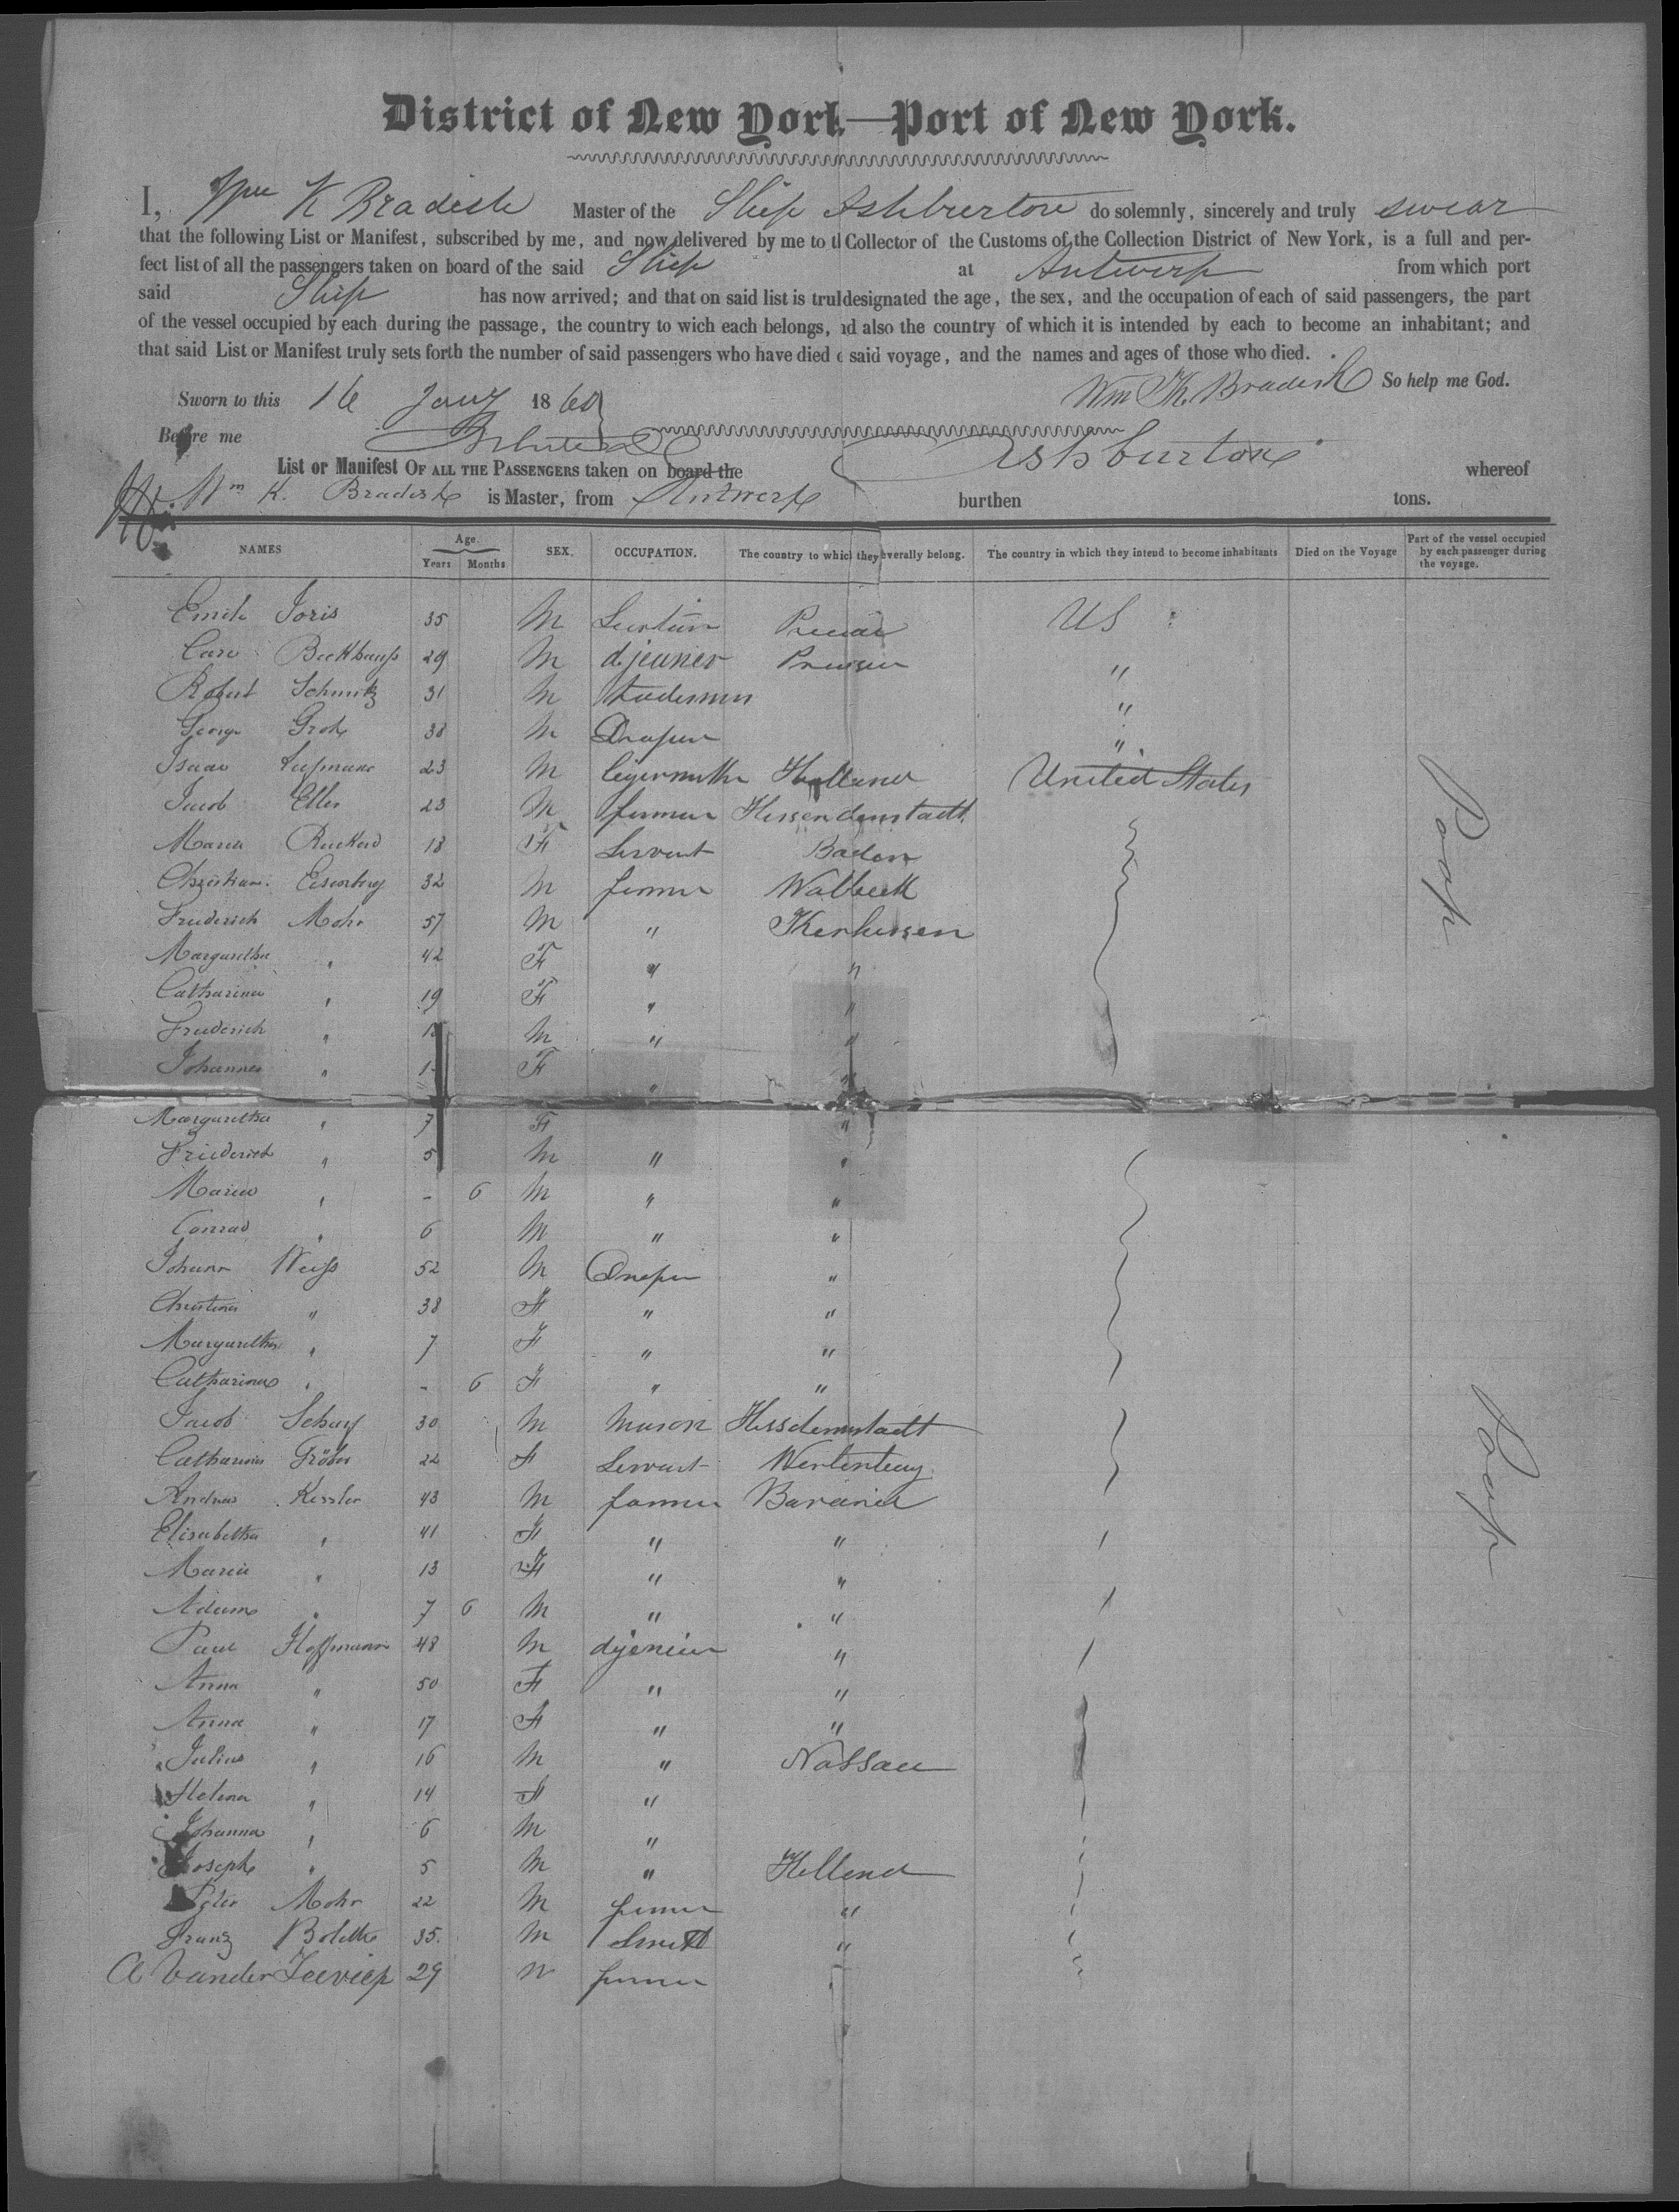 District of New York—Port of New York.
I, Wm K Bradish Master of the Ship Ashburton do solemnly, sincerely and truly swear
that the following List or Manifest, subscribed by me, and now delivered by me to t Collector of the Customs of the Collection District of New York, is a full and per-
fect list of all the passengers taken on board of the said Ship at Antwerp from which port
said Ship has now arrived; and that on said list is trul designated the age, the sex, and the occupation of each of said passengers, the part
of the vessel occupied by each during the passage, the country to wich each belongs, nd also the country of which it is intended by each to become an inhabitant; and
that said List or Manifest truly sets forth the number of said passengers who have died said voyage, and the names and ages of those who died.
Wm K. Bradish So help me God.
Sworn to this 16 Jany 1860
Before me
List or Manifest OF ALL THE PASSENGERS taken on board the Ashburton whereof
Wm K. Bradish is Master, from Antwerp burthen tons.
NAMES Age. Years Months SEX. OCCUPATION. The country to which they everally belong. The country in which they intend to become inhabitants Died on the Voyage Part of the vessel occupied by each passenger during the voyage.
Emile Joris 35 M US
Carl Beckhauss 29 M "
Robert Schmitz 31 M "
George Groh 38 M Draper "
Isaac 23 M Holland United States
Jacob Eller 23 M farmer Hessendarmstadt
Maria Ruckerd 18 F Servant Baden
Christian Eisenberg 32 M farmer Walbeck
Friederich Mohr 57 M " Kerhessen
Margaretha " 42 F " "
Catharina " 19 F " "
Friederich " M " "
Johannes " F " "
Margaretha " 7 F "
Friederich " 5 M " "
Maria " - 6 M " "
Conrad " 6 M " "
Johann Weiss 52 M Draper "
Christina " 38 F " "
Margaretha " 7 F " "
Catharina " - 6 F " "
Jacob Scharf 30 M Mason Hessdarmstadt
Catharina Gröber 22 F Servant Wertenberg
Andreas Kessler 43 M farmer Bavaria
Elisabetha " 41 F " "
Maria " 13 F " "
Adam " 7 6 M " "
Paul Hoffmann 48 M "
Anna " 50 F " "
Anna " 17 F " "
Julius " 16 M " Nassau
Helena " 14 F "
Johanna " 6 M "
Joseph " 5 M " Holland
Peter Mohr 22 M farmer "
Franz 35. M Smith "
A Vander 29 M farmer